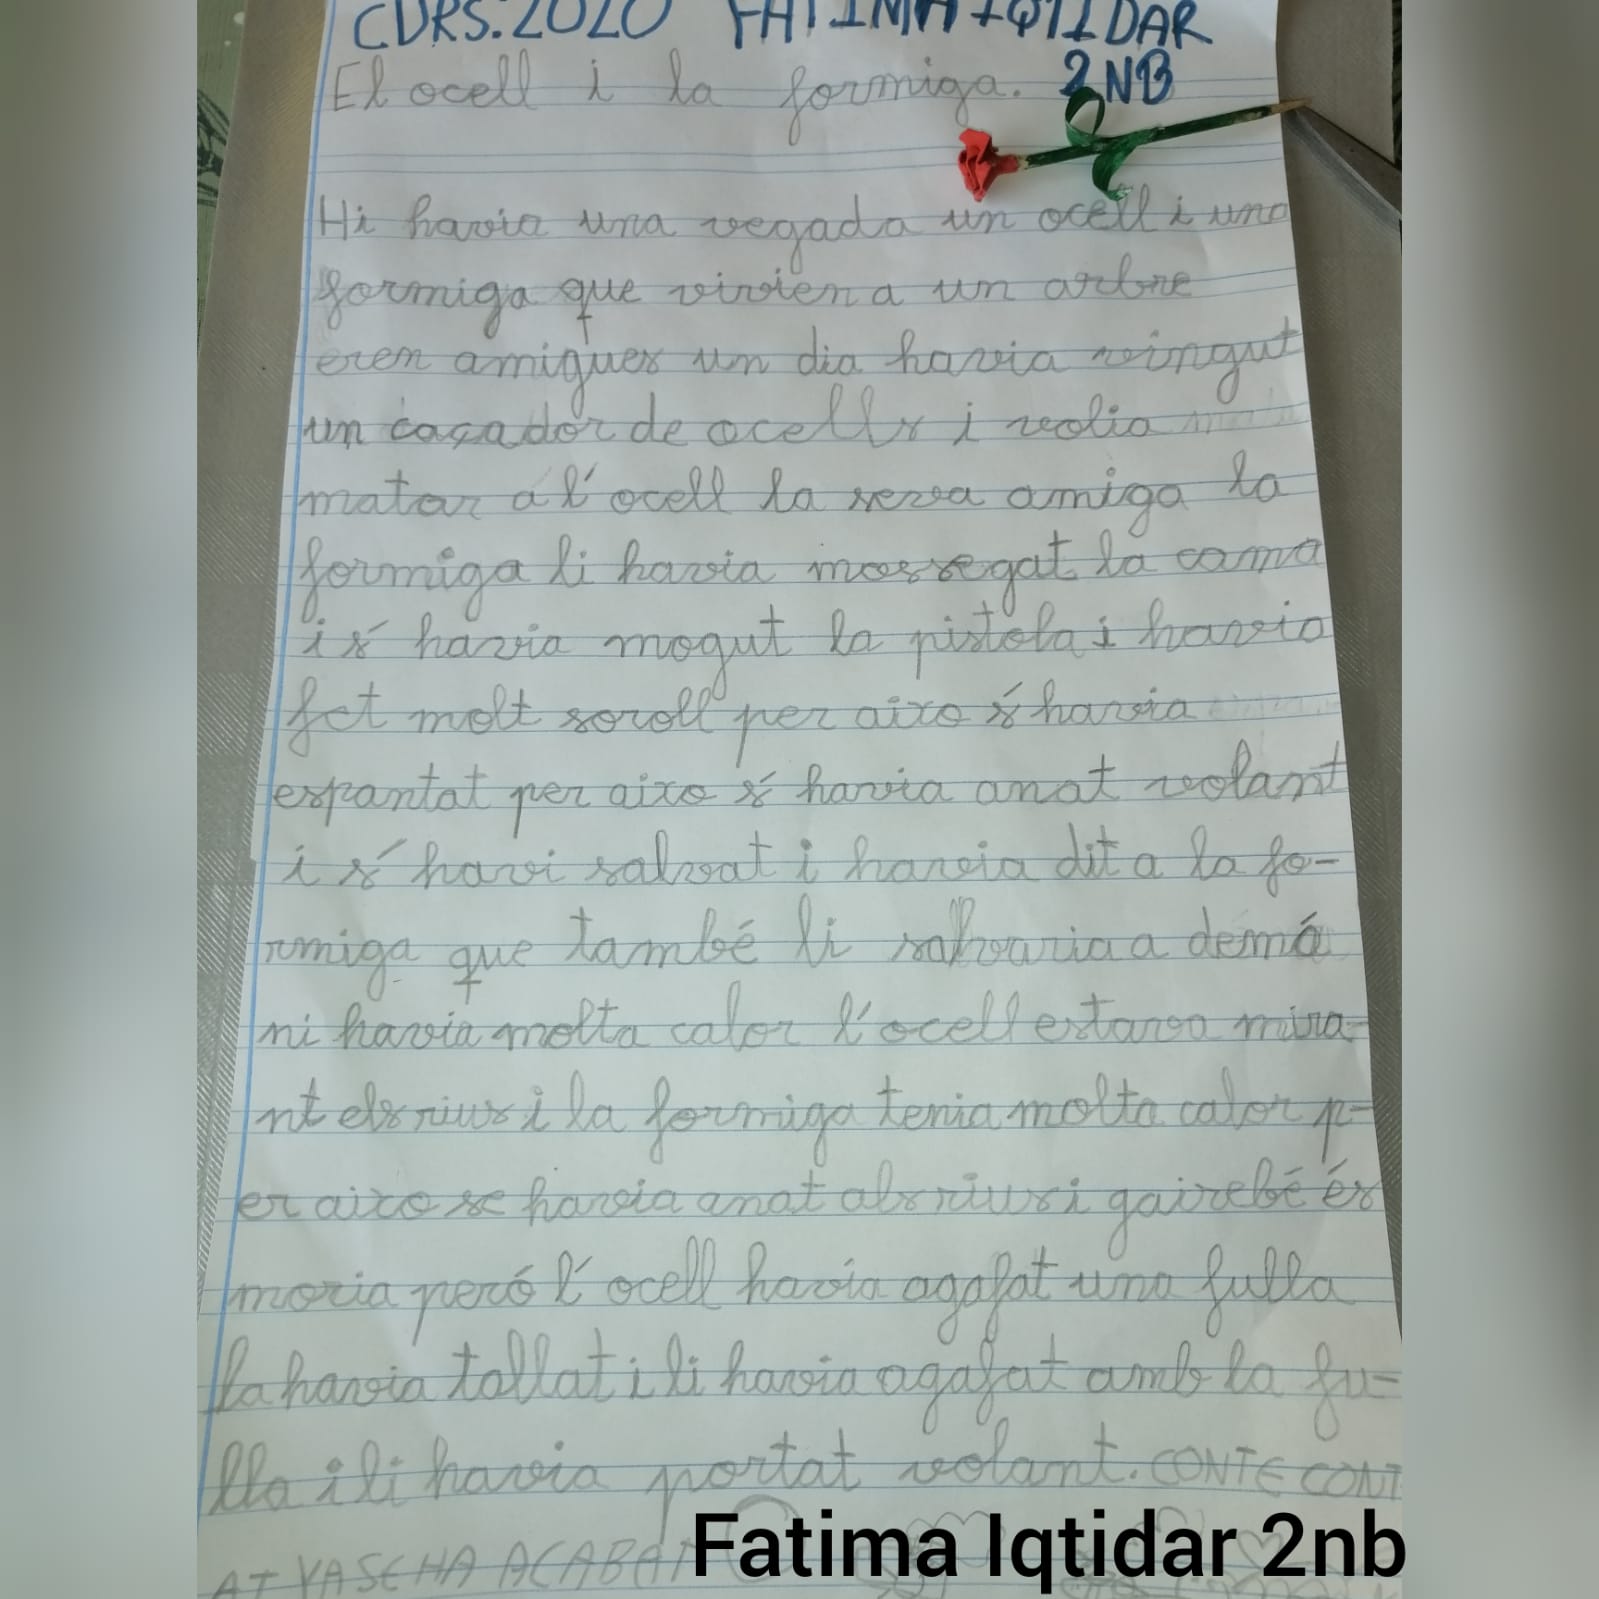 CURS.2020 FATIMA IQTIDAR
El ocell i la formiga. 2NB
Hi havia una vegada un ocell i una
formiga que vivien a un arbre
eren amigues un dia havia vingut
un caçador de ocells i volia
matar a l'ocell la seva amiga la
formiga li havia mossegat la cama
i s'havia mogut la pistola i havia
fet molt soroll per aixo s'havia
espantat per aixo s'havia anat volant
i s'havi salvat i havia dit a la fo-
rmiga que també li salvaria a demá
ni havia molta calor l'ocell estava mira-
nt els rius i la formiga tenia molta calor p-
er aixo se havia anat als rius i gairebé és
moria peró l'ocell havia agafat una fulla
la havia tallat i li havia agafat amb la fu-
lla i li havia portat volant. CONTE CONT
AT YA SE HA ACABAT
Fatima Iqtidar 2nb